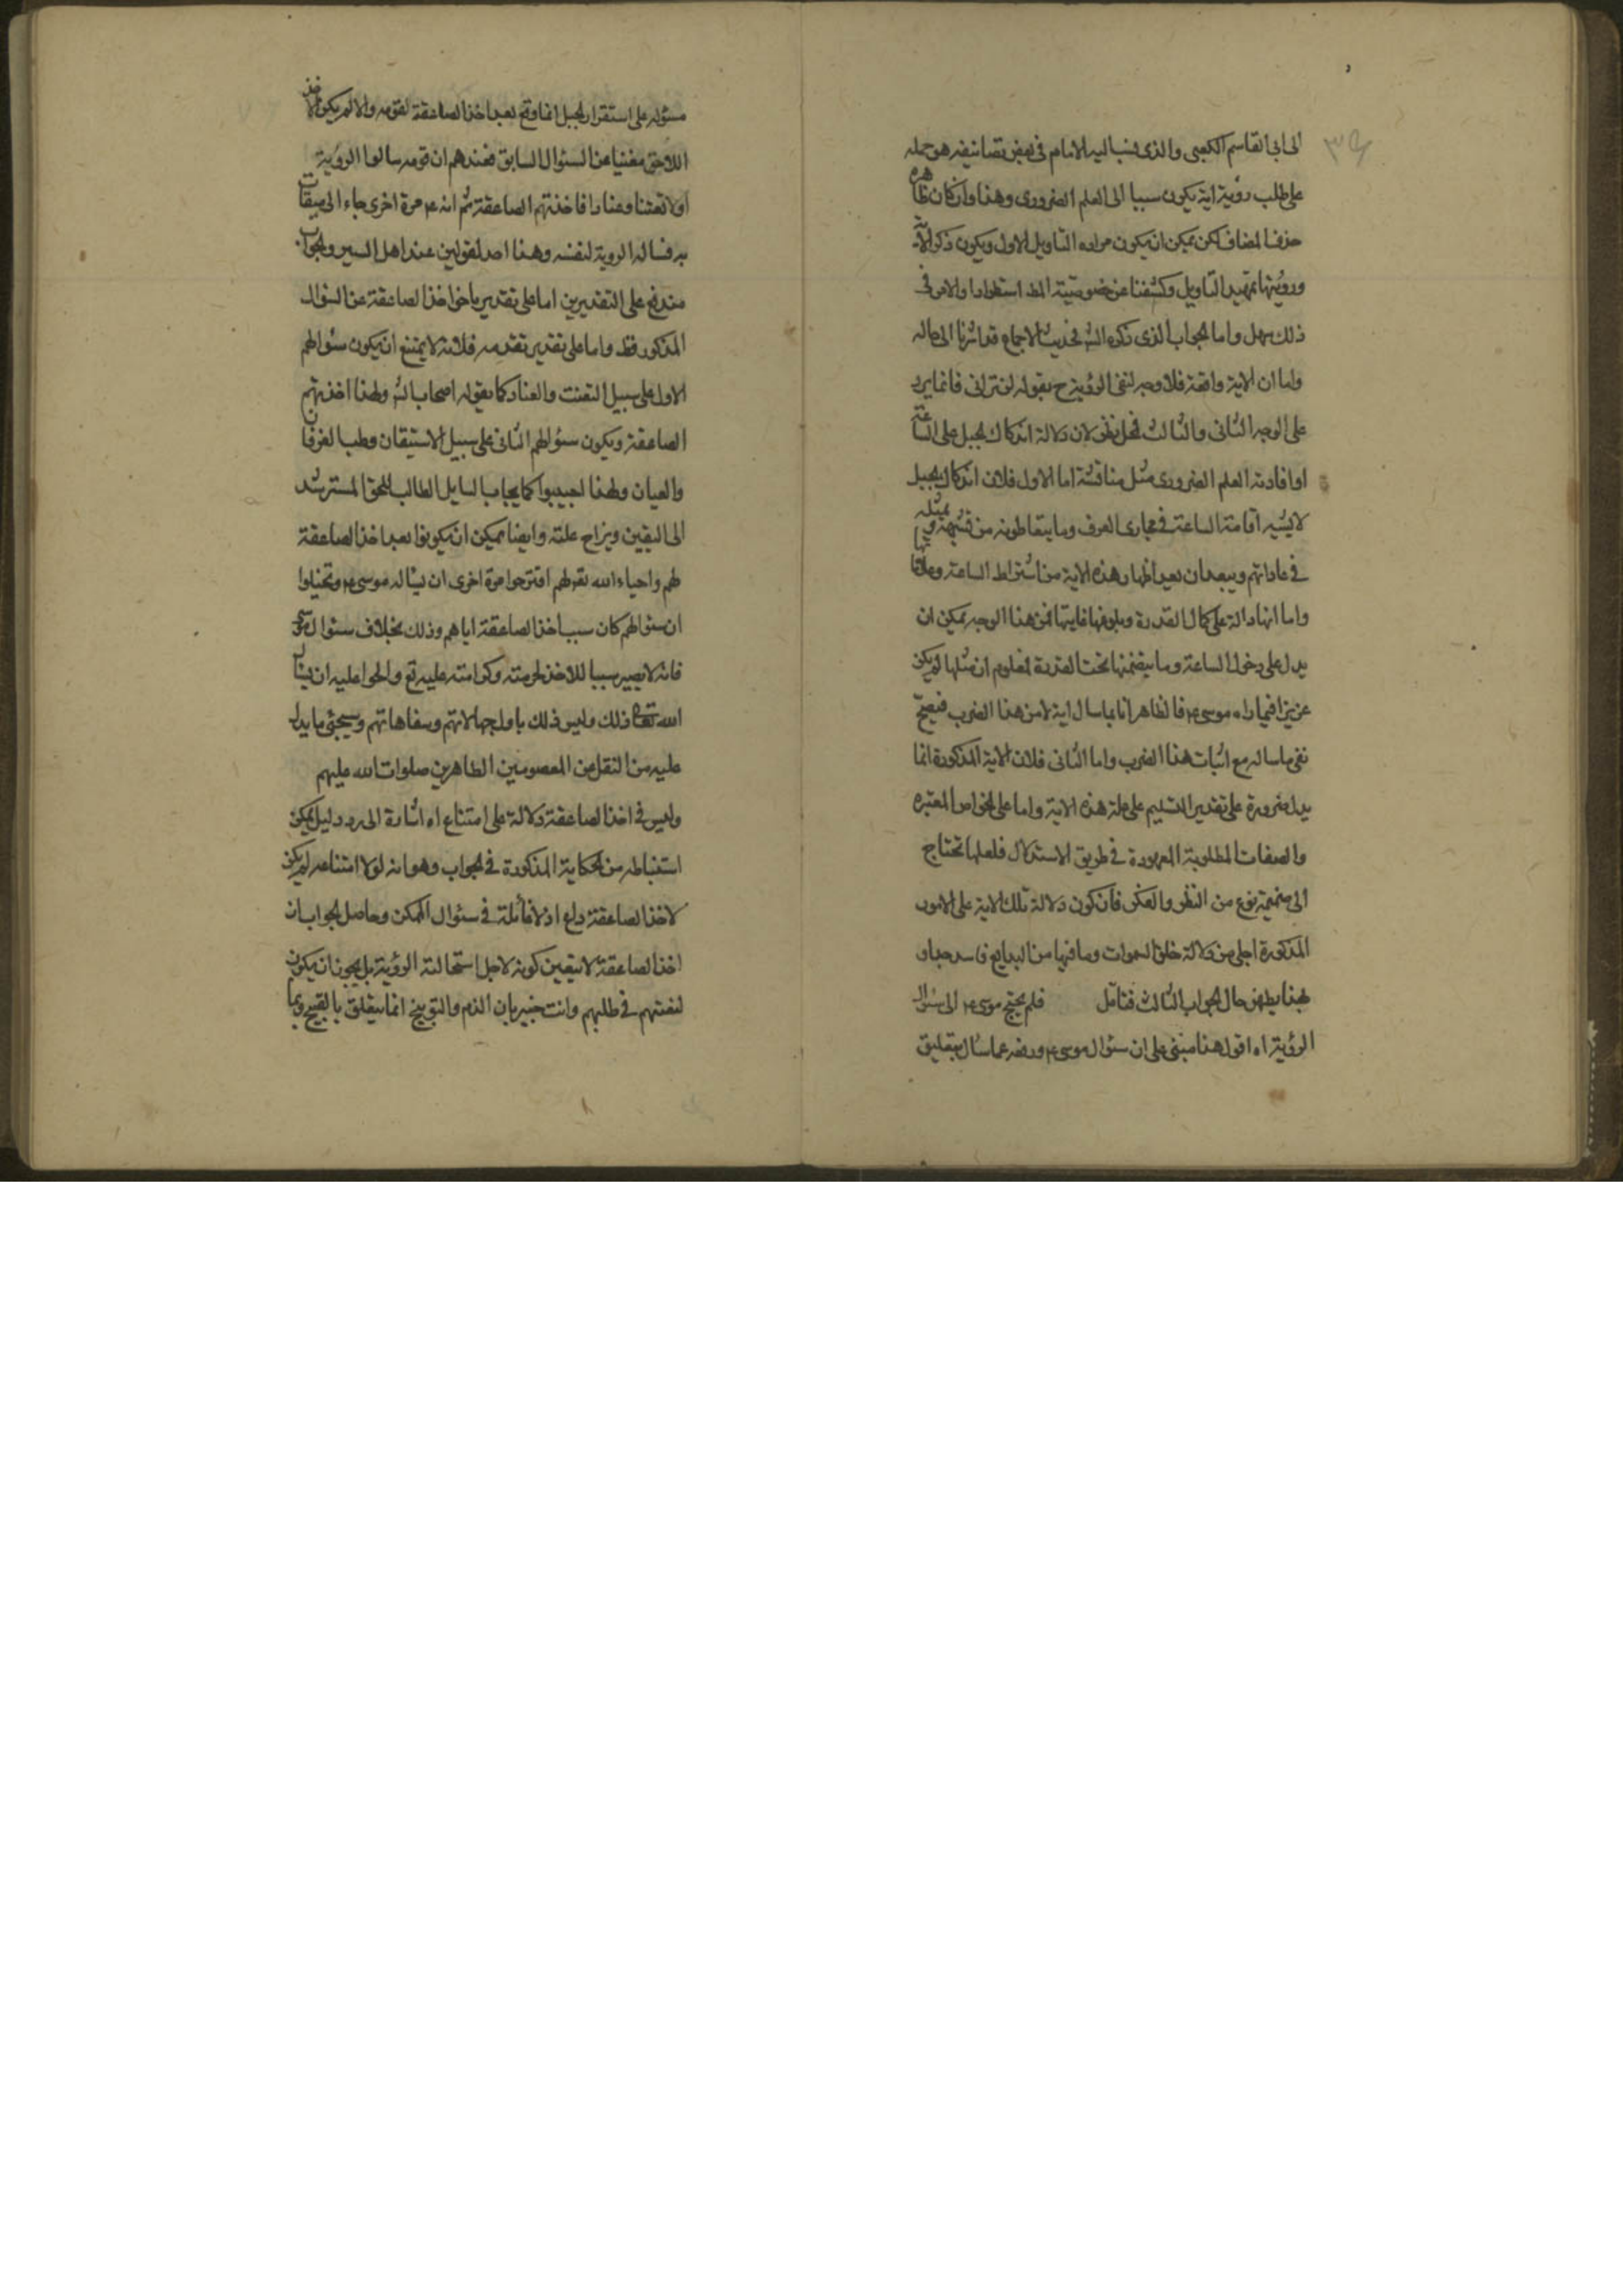 الى ابى القاسم الكعبى والذى نسبه اليه الامام فى بعض تصانيفه هو حمله
على طلب رؤية اية يكون سببا الى العلم الضرورى وهذا وان كان ظاهره
حذف المضاف لكن يمكن ان يكون مراده التاويل الاول ويكون ذكر الاية
ورؤيتها تمهيد التاويل وكشفنا عن خصوصية المط استطرادا والامر فى
ذلك سهل واما الجواب الذى ذكره الش فحديث الاجماع قد اشرنا الى حاله
واما ان الاية واقعة فلا وجه لنفى الرؤية ح بقوله لن ترانى فانما يرد
على الوجه الثانى والثالث محل نظر لان دلالة اندكاك الجبل على الساعة
او افادته العلم الضرورى مثل مناقشة اما الاول فلان اندكاك الجبل
لا يشبه اقامة الساعة فى مجارى العرف وما يتعاطونه من
فى عاداتهم ويبعد ان يعد اظهار هذه الاية من اشتراط الساعة وعلاماتها
واما انها دالة على كمال القدرة وبلوغها غايتها فمن هذا الوجه يمكن ان
يدل على دخول الساعة وما يتضمنها تحت القدرة فمعلوم ان مثلها لم يكن
عزيزا فيما راه موسى ع فالظاهر انما سال اية لا من هذا الضرب فيصح
نفى ما ساله مع اثبات هذا الضرب واما الثانى فلان الاية المذكورة انما
يدل ضرورة على تقدير التسليم على علة هذه الاية واما على الخواص المعتبره
والصفات المطلوبة المعهودة فى طريق الاستدلال فلعلها تحتاج
الى ضميمة نوع من النظر والفكر فان كون دلالة تلك الاية على الامور
المذكورة اجلى من دلالة خلق السموات وما فيها من البدايع فاسد جدا و
بهذا يظهر حال الجواب الثالث فتامل فلم يحتج موسى ع الى سؤال
الرؤية اه اقول هذا مبنى على ان سئوال موسى ع وردعه عما سال بتعليق
مسئوله على استقرار الجبل انما وقع بعد اخذ الصاعقة لقومه والا لم يكن الاخذ
اللاحق مغنيا عن السئوال السابق فعندهم ان قومه سالوا الرؤية
اولا تعنتا وعنادا فاخذتهم الصاعقة ثم انه ع مرة اخرى جاء الى ميقات
ربه فساله الروية لنفسه وهذا احد لقولين عند اهل السير والجواب
مندفع على التقديرين اما على تقدير تاخر اخذ الصاعقة عن السئوال
المذكور فظ واما على تقدير تقدمه فلانه لا يمتنع ان يكون سئوالهم
الاول على سبيل التعنت والعناد كما يقوله اصحاب الش ولهذا اخذتهم
الصاعقة ويكون سئوالهم الثانى على سبيل الاستيقان وطلب العرفان
والعيان ولهذا اجيبوا كما يجاب السايل الطالب للحق المسترشد
الى اليقين ويزاح علته وايضا يمكن ان يكونوا بعد اخذ الصاعقة
لهم واحياء الله تع لهم اقترحوا مرة اخرى ان يساله موسى ع وتخيلوا
ان سئوالهم كان سبب اخذ الصاعقة اياهم وذلك بخلاف سئوال موسى
فانه لا يصير سببا للاخذ لحرمته وكرامته عليه تع والحوا عليه ان يسال
الله تعالى ذلك وليس ذلك باول جهالاتهم وسفاهاتهم وسيجئ ما يدل
عليه من النقل عن المعصومين الطاهرين صلوات الله عليهم
وليس فى اخذ الصاعقة دلالة على امتناع اه اشارة الى رد دليل يمكن
استنباطه من الحكاية المذكورة فى الجواب وهو انه لولا امتناعه لم يكن
لاخذ الصاعقة داع اذ لا غائلة فى سئوال الممكن وحاصل الجواب ان
اخذ الصاعقة لا يتعين كونه لاجل استحالة الرؤية بل يجوز ان يكون
لتعنتهم فى طلبهم وانت خبير بان الذم والتوبيخ انما يتعلق بالقبيح وبما